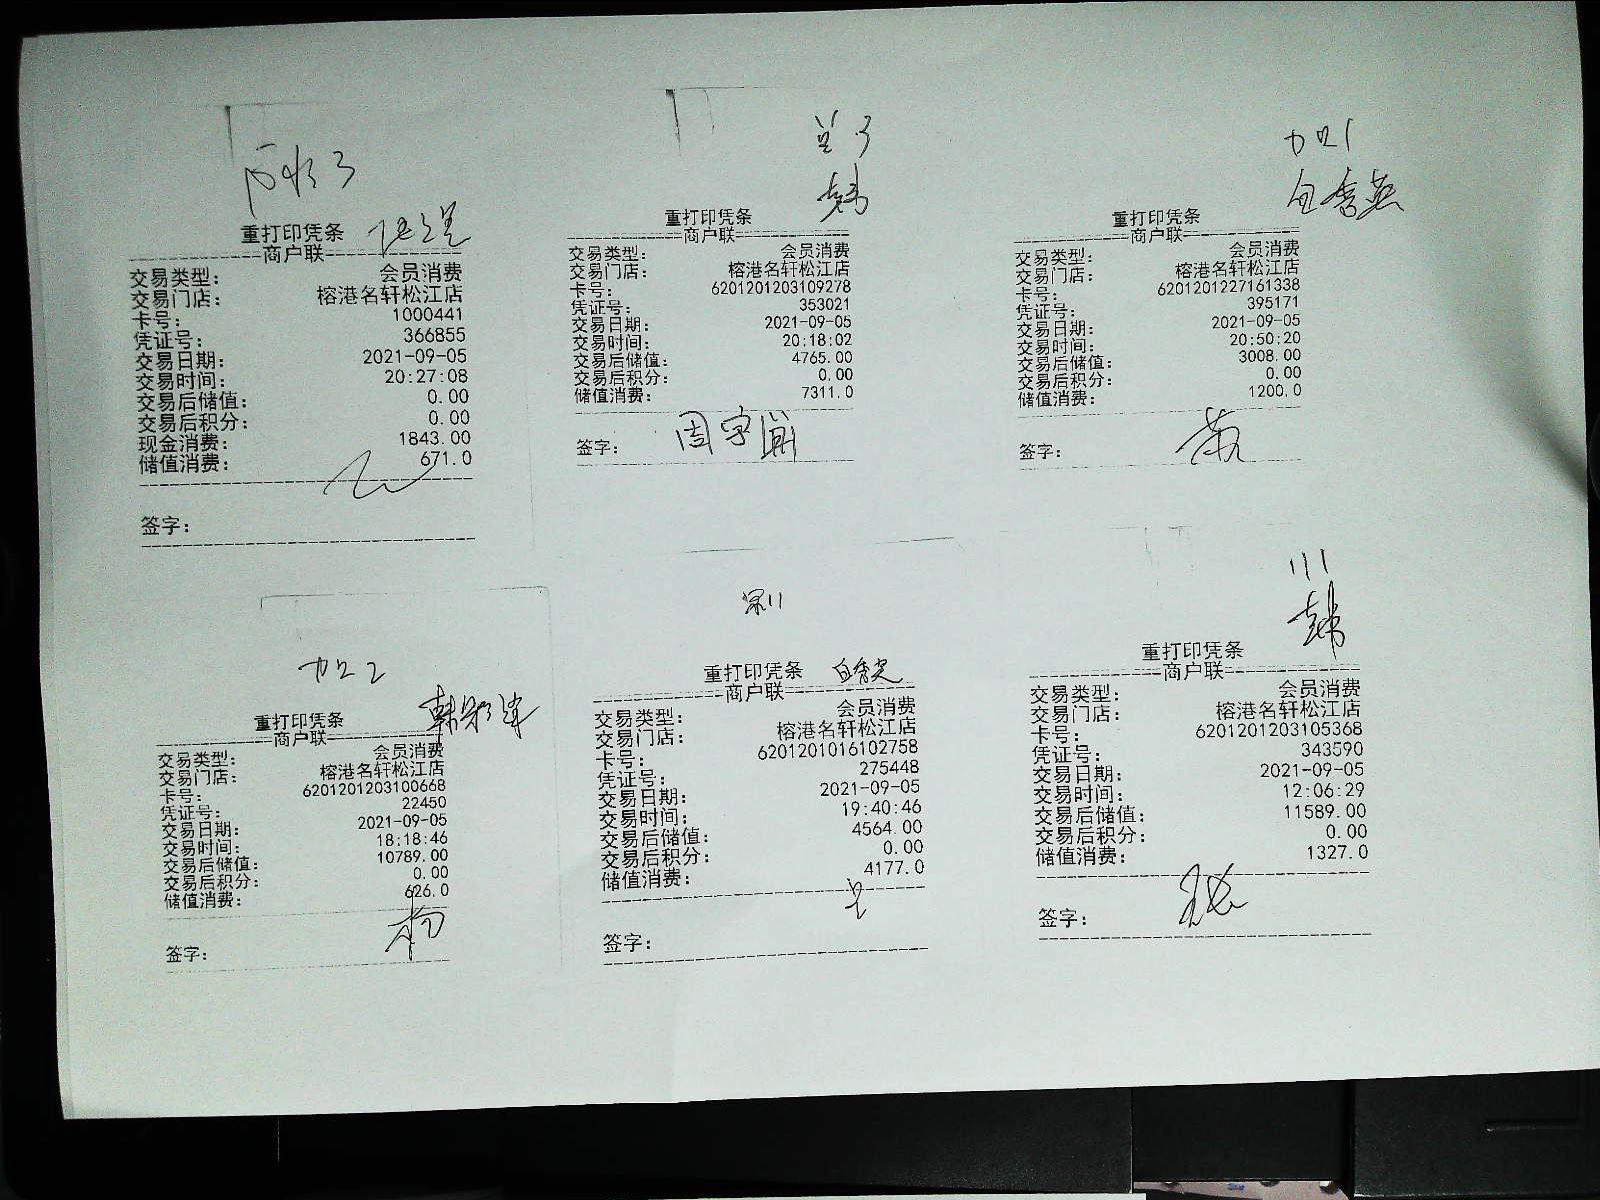 重打印凭条
商户联
交易类型： 会员消费
交易门店： 榕港名轩松江店
卡号： 1000441
凭证号： 366855
交易日期： 2021-09-05
交易时间： 20:27:08
交易后储值： 0.00
交易后积分： 0.00
现金消费： 1843.00
储值消费： 671.0
签字：
重打印凭条
商户联
交易类型： 会员消费
交易门店： 榕港名轩松江店
卡号： 6201201203109278
凭证号： 353021
交易日期： 2021-09-05
交易时间： 20:18:02
交易后储值： 4765.00
交易后积分： 0.00
储值消费： 7311.0
签字：
重打印凭条
商户联
交易类型： 会员消费
交易门店： 榕港名轩松江店
卡号： 6201201227161338
凭证号： 395171
交易日期： 2021-09-05
交易时间： 20:50:20
交易后储值： 3008.00
交易后积分： 0.00
储值消费： 1200.0
签字：
重打印凭条
商户联
交易类型： 会员消费
交易门店： 榕港名轩松江店
卡号： 6201201203100668
凭证号： 22450
交易日期： 2021-09-05
交易时间： 18:18:46
交易后储值： 10789.00
交易后积分： 0.00
储值消费： 626.0
签字：
重打印凭条
商户联
交易类型： 会员消费
交易门店： 榕港名轩松江店
卡号： 6201201016102758
凭证号： 275448
交易日期： 2021-09-05
交易时间： 19:40:46
交易后储值： 4564.00
交易后积分： 0.00
储值消费： 4177.0
签字：
重打印凭条
商户联
交易类型： 会员消费
交易门店： 榕港名轩松江店
卡号： 6201201203105368
凭证号： 343590
交易日期： 2021-09-05
交易时间： 12:06:29
交易后储值： 11589.00
交易后积分： 0.00
储值消费： 1327.0
签字：